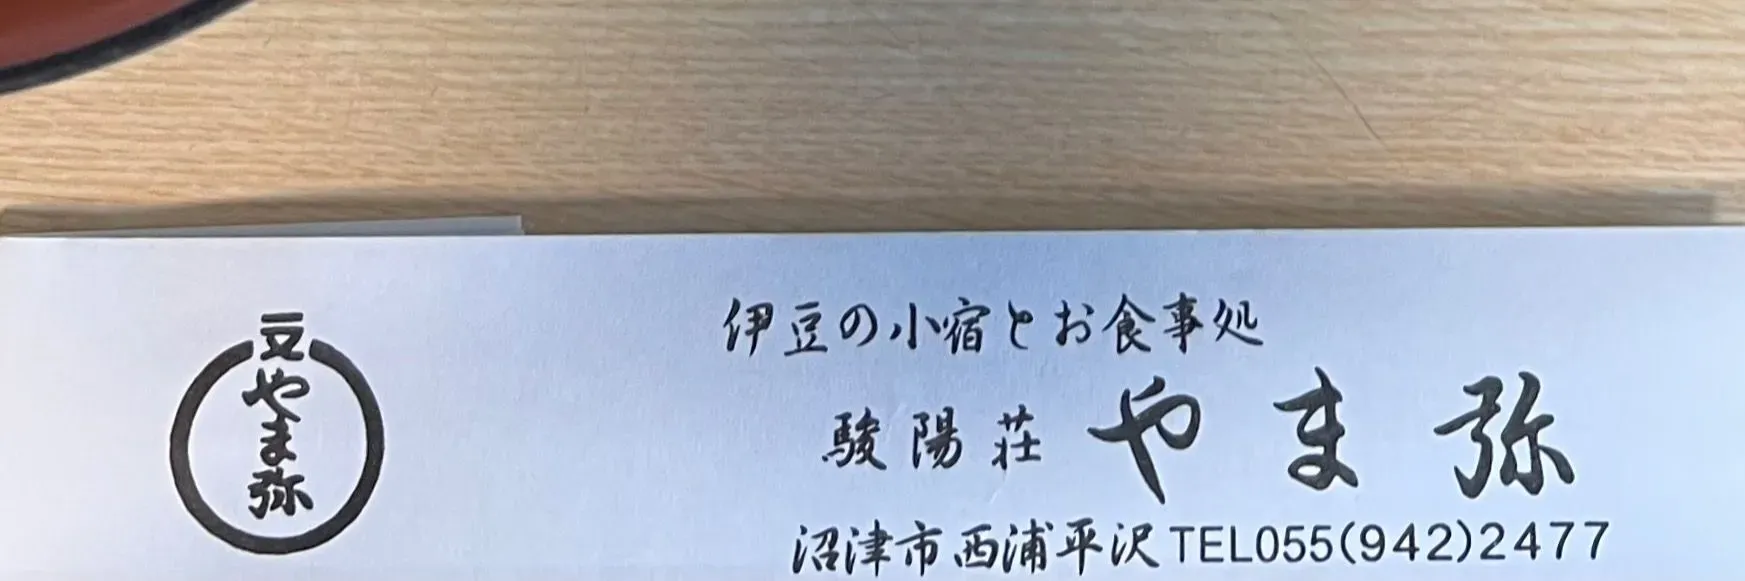 伊豆の小宿とお食事処
駿陽荘 やま弥
沼津市西浦平沢TEL055(942)2477
豆
やま弥